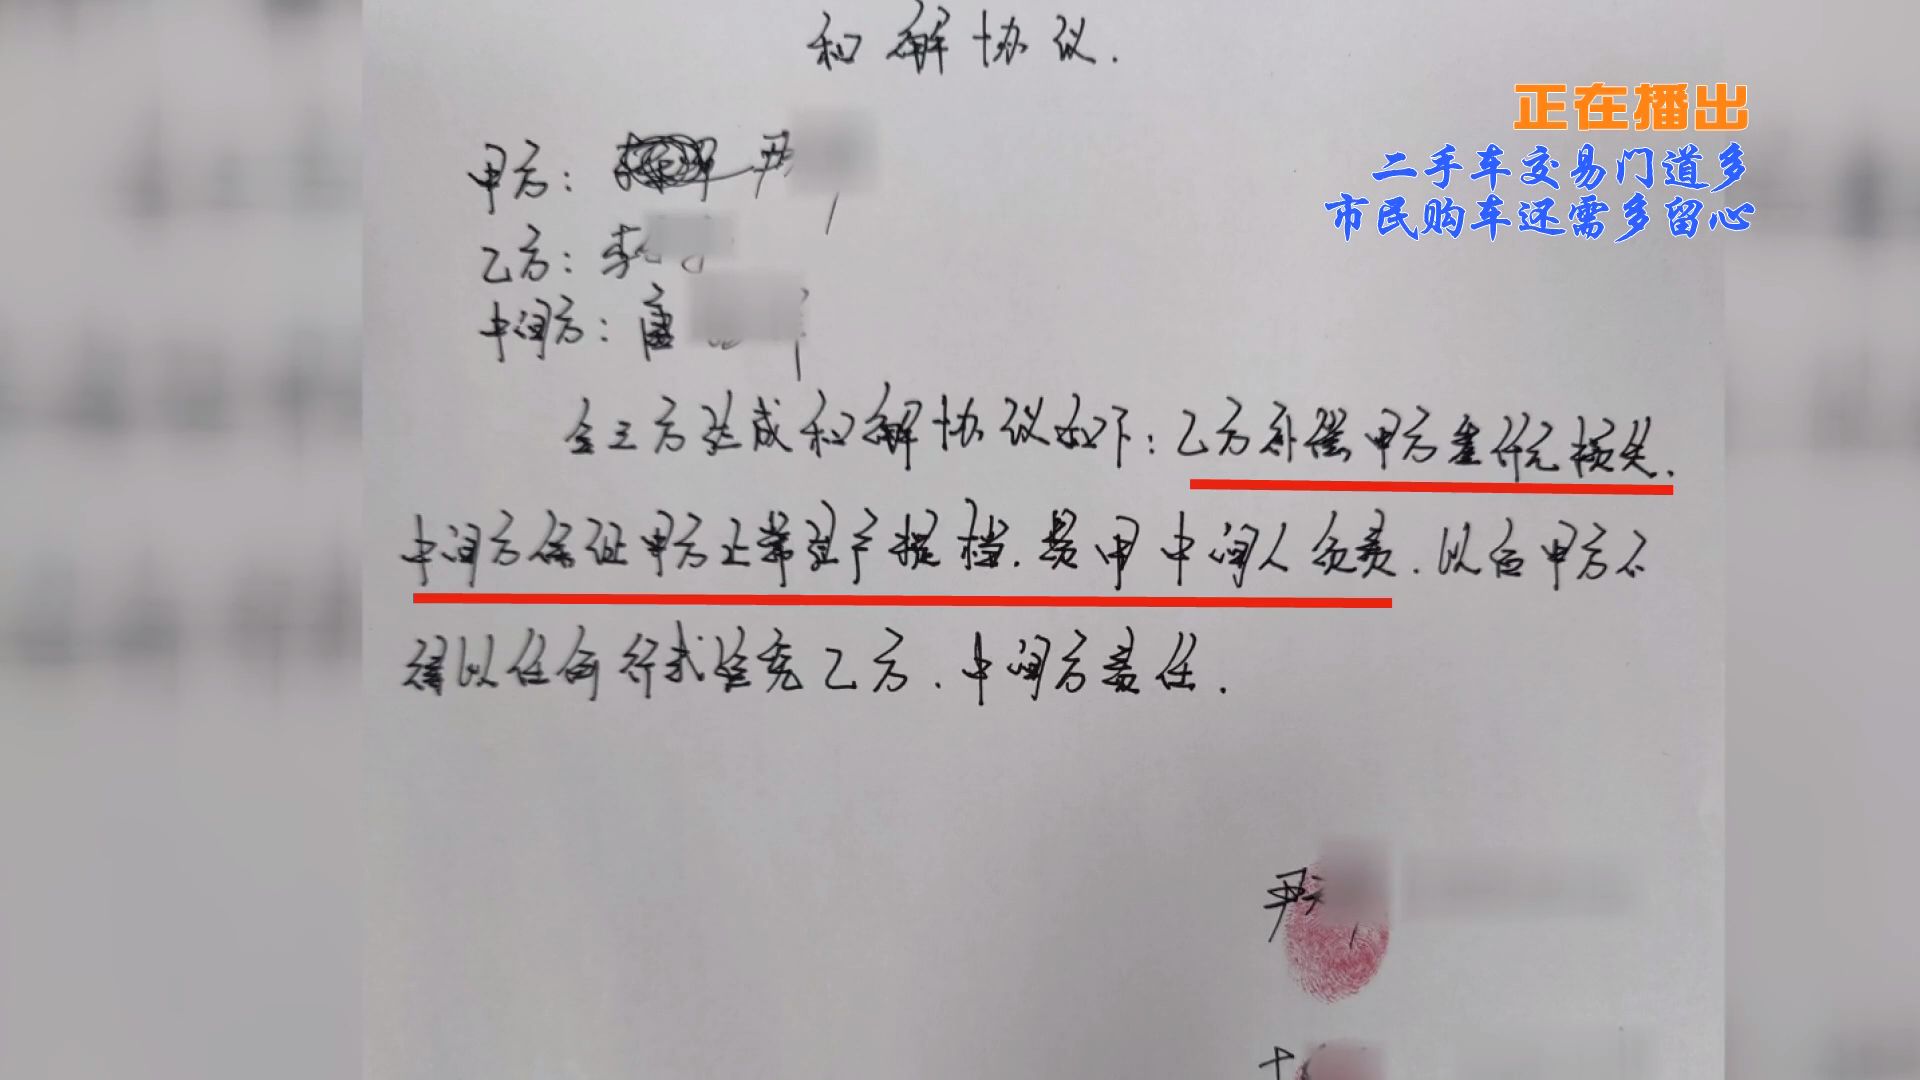 和解协议.
正在播出
二手车交易门道多
市民购车还需多留心
甲方: 尹
乙方: 李
中间方: 唐
全三方达成和解协议如下:乙方补偿甲方壹仟元损失.
中间方保证甲方正常过户提档.费用中间人负责.以后甲方不
得以任何行式追究乙方.中间方责任.
尹